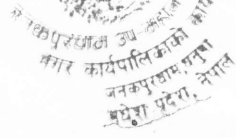 जनकपुरधाम उप-महानगर
नगर कार्यपालिकाको कार्या
जनकपुरधाम, धनुषा
मधेश प्रदेश, नेपाल